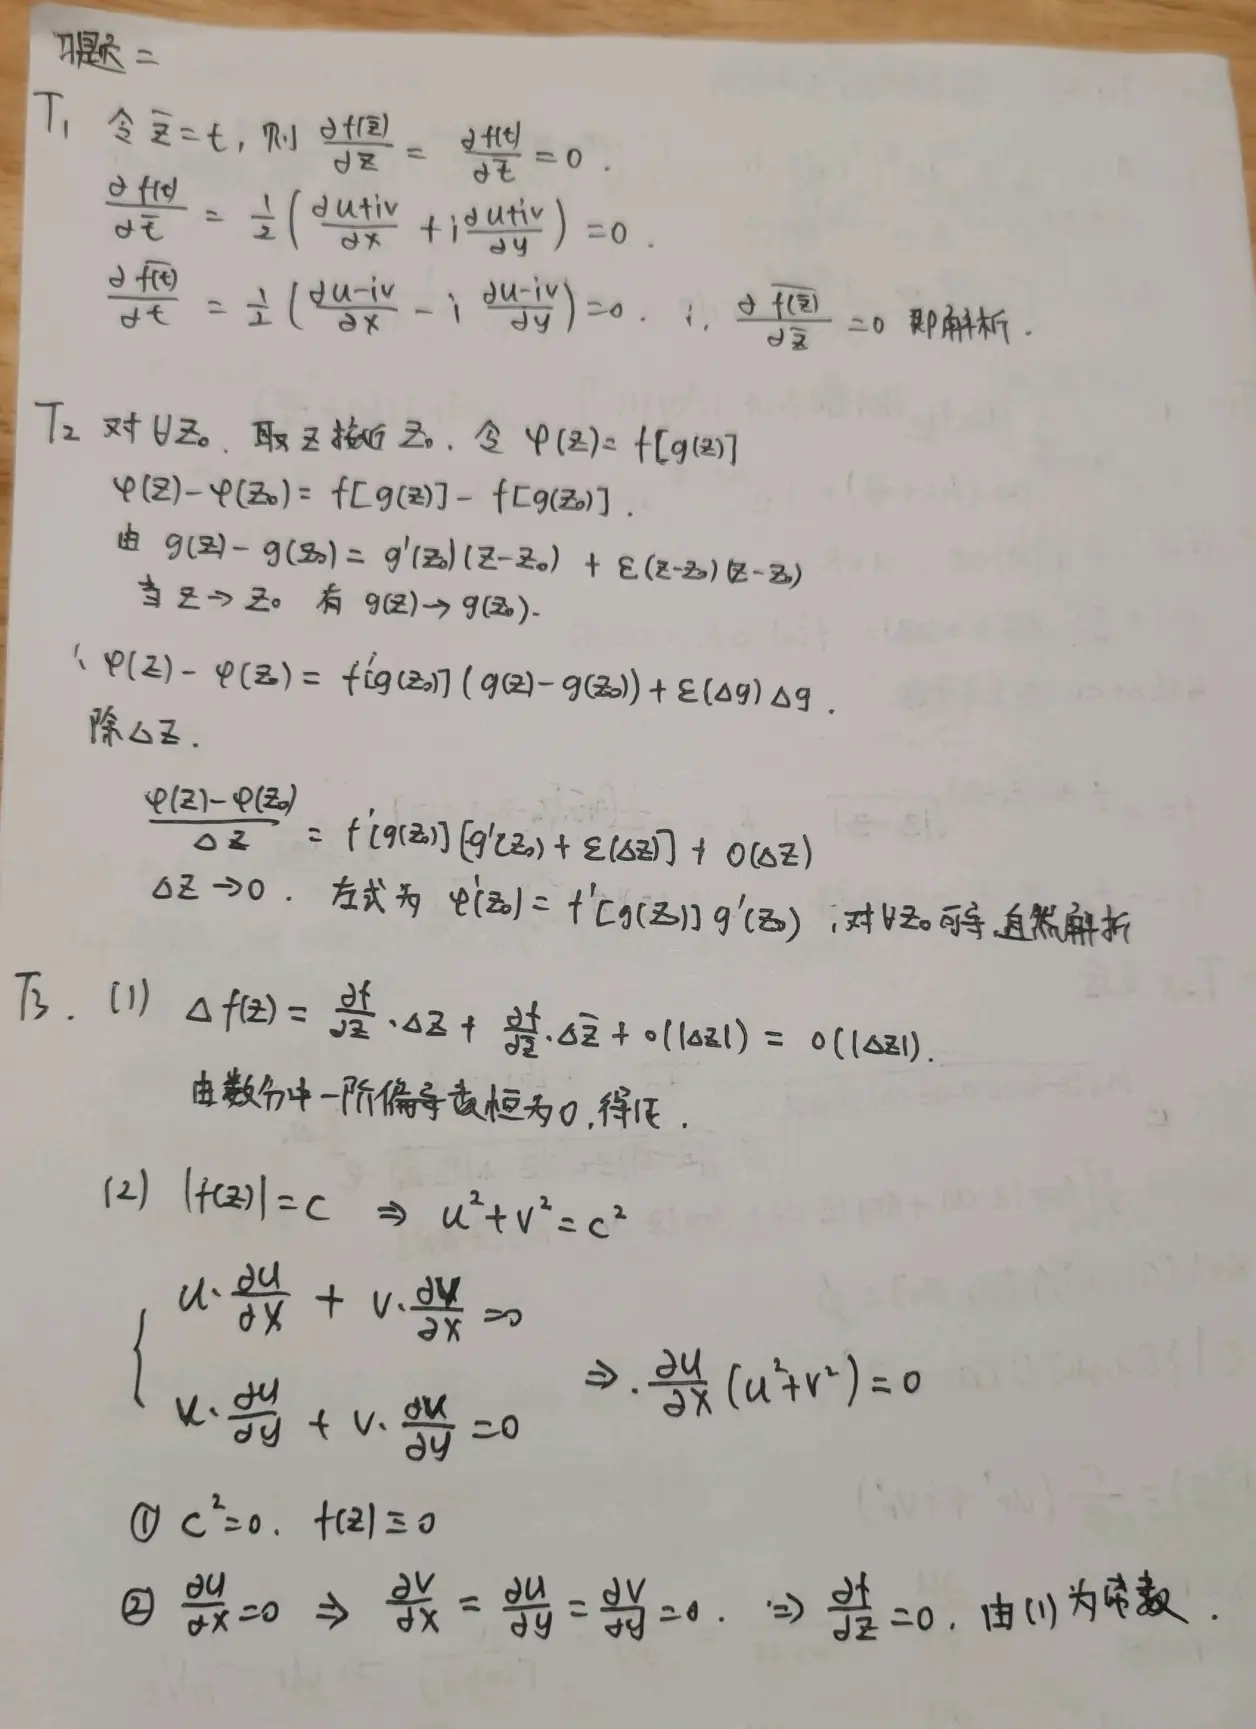 习题二
T₁ 令 z̄=t, 则 ∂f(z̄)/∂z = ∂f(t)/∂t̄ = 0 .
∂f(t)/∂t̄ = 1/2 ( ∂u+iv/∂x + i ∂u+iv/∂y ) = 0 .
∂f̅(̅t̅)̅/∂t = 1/2 ( ∂u-iv/∂x - i ∂u-iv/∂y ) = 0 . ∴ ∂f̅(̅z̅)̅/∂z̄ = 0 即解析 .
T₂ 对∀z₀ . 取 z 接近 z₀ . 令 φ(z) = f[g(z)]
φ(z)-φ(z₀) = f[g(z)] - f[g(z₀)] .
由 g(z)-g(z₀) = g'(z₀)(z-z₀) + ε(z-z₀)(z-z₀)
当 z→z₀ 有 g(z)→g(z₀) .
∴ φ(z)-φ(z₀) = f'[g(z₀)](g(z)-g(z₀)) + ε(Δg)Δg .
除Δz .
φ(z)-φ(z₀)/Δz = f'[g(z₀)][g'(z₀)+ε(Δz)] + o(Δz)
Δz→0 . 左式为 φ'(z₀) = f'[g(z₀)]g'(z₀) ∴对∀z₀可导,自然解析
T₃ . (1) Δf(z) = ∂f/∂z·Δz + ∂f/∂z̄·Δz̄ + o(|Δz|) = o(|Δz|) .
由数分中一阶偏导数恒为0,得证 .
(2) |f(z)| = c ⇒ u²+v² = c²
{ u·∂u/∂x + v·∂v/∂x = 0
⇒ . ∂u/∂x (u²+v²) = 0
u·∂u/∂y + v·∂v/∂y = 0
① c²=0 . f(z)≡0
② ∂u/∂x=0 ⇒ ∂v/∂x = ∂u/∂y = ∂v/∂y = 0 . ⇒ ∂f/∂z = 0 . 由(1)为常数 .